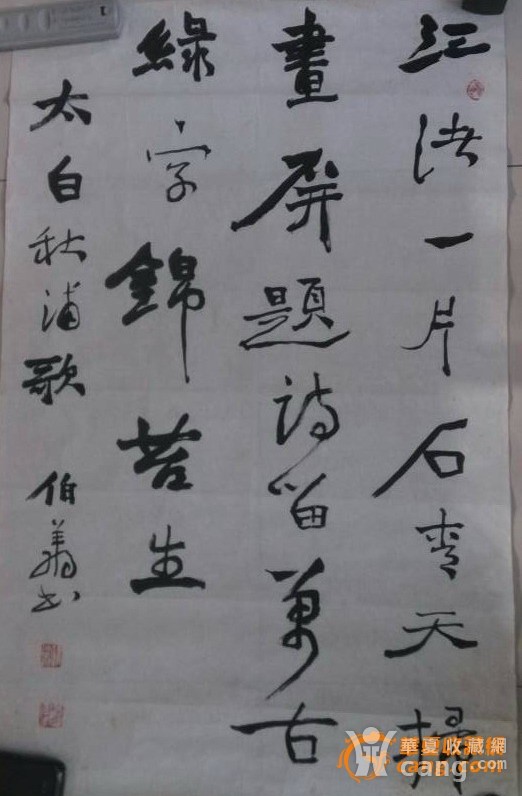 江渚一片石青天掃
畫屏題詩留萬古
綠字錦苔生
太白秋浦歌 伯書
華夏收藏網
cang.com